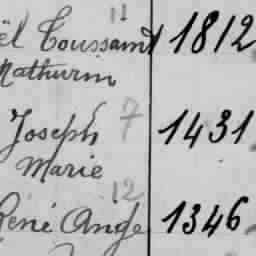 11
ël Toussaint 1812
Mathurin
Joseph 7 1431
Marie
12
René Ange 1346